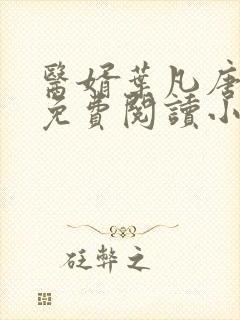 醫婿葉凡唐
免費閱讀小
砭弊之